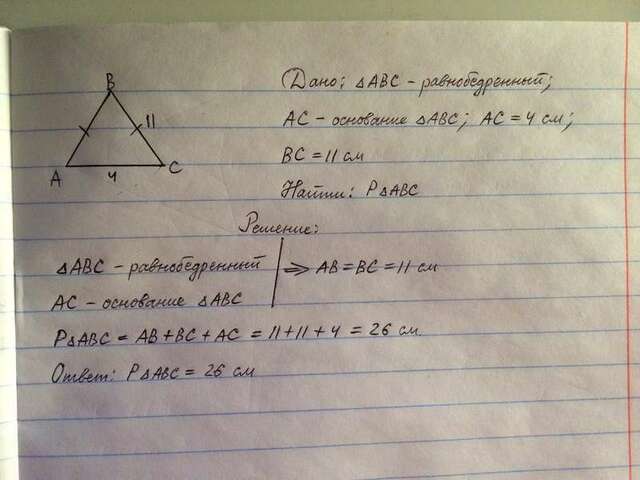 B
11
A
4
C
Дано: △ABC – равнобедренный;
AC – основание △ABC; AC = 4 см;
BC = 11 см
Найти: P△ABC
Решение:
△ABC – равнобедренный
⇒ AB = BC = 11 см
AC – основание △ABC
P△ABC = AB + BC + AC = 11 + 11 + 4 = 26 см.
Ответ: P△ABC = 26 см